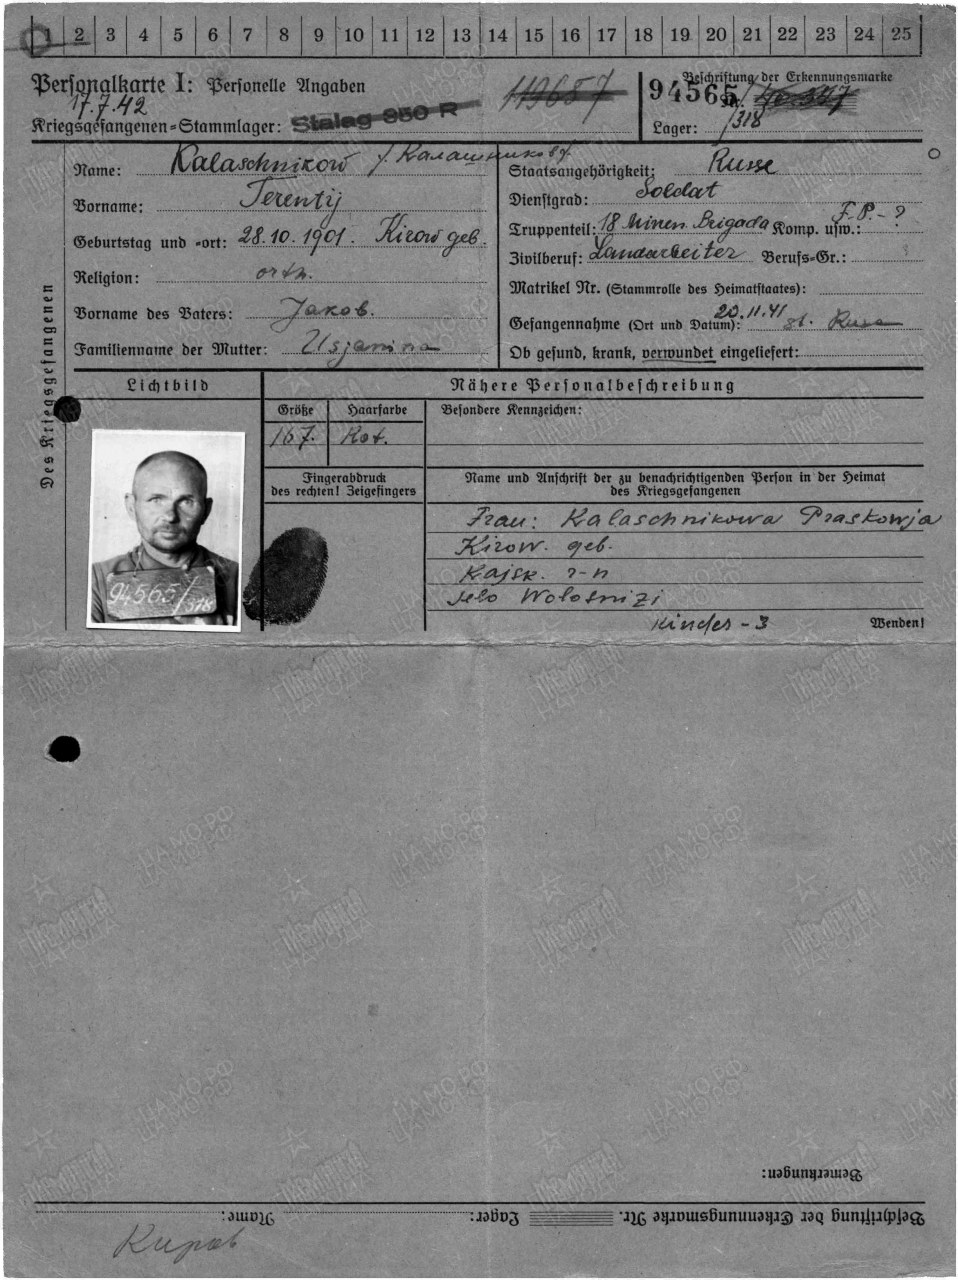 1 2 3 4 5 6 7 8 9 10 11 12 13 14 15 16 17 18 19 20 21 22 23 24 25
Personalkarte I: Personelle Angaben
17.7.42
Kriegsgefangenen-Stammlager: Stalag 350 R
119657
Beschriftung der Erkennungsmarke
94565/
Nr.
Lager: /318
Des Kriegsgefangenen
Name: Kalaschnikow /Калашников/
Vorname: Terentij
Geburtstag und -ort: 28.10.1901. Kirow geb.
Religion: orth.
Vorname des Vaters: Jakob.
Familienname der Mutter: Usjanina
Staatsangehörigkeit: Russe
Dienstgrad: Soldat
Truppenteil: 18 Minen Brigada Komp. usw.: F.P.-?
Zivilberuf: Landarbeiter Berufs-Gr.:
Matrikel Nr. (Stammrolle des Heimatstaates):
Gefangennahme (Ort und Datum): 20.11.41 st. Rusa
Ob gesund, krank, verwundet eingeliefert:
Lichtbild
94565/318
Nähere Personalbeschreibung
Größe Haarfarbe Besondere Kennzeichen:
167. Rot.
Fingerabdruck
des rechten! Zeigefingers
Name und Anschrift der zu benachrichtigenden Person in der Heimat
des Kriegsgefangenen
Frau: Kalaschnikowa Praskowja
Kirow. geb.
Kajsk. r-n
selo Wolosnizi
Kinder - 3
Wenden!
Bemerkungen:
Beschriftung der Erkennungsmarke Nr. Lager: Name:
Киров